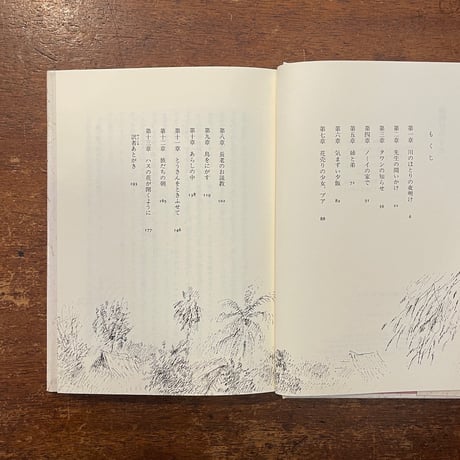 もくじ
第一章 川のほとりの夜明け 6
第二章 先生の問いかけ 21
第三章 クワンの知らせ
第四章 ノーイの家で 51
第五章 姉と弟 71
第六章 気まずい夕飯 82
第七章 花売りの少女、ブア 88
第八章 長老のお説教 102
第九章 鳥をにがす 119
第十章 あらしの中 138
第十一章 とうさんをときふせて 146
第十二章 旅だちの朝 165
第十三章 ハスの花が開くように 177
訳者あとがき 193